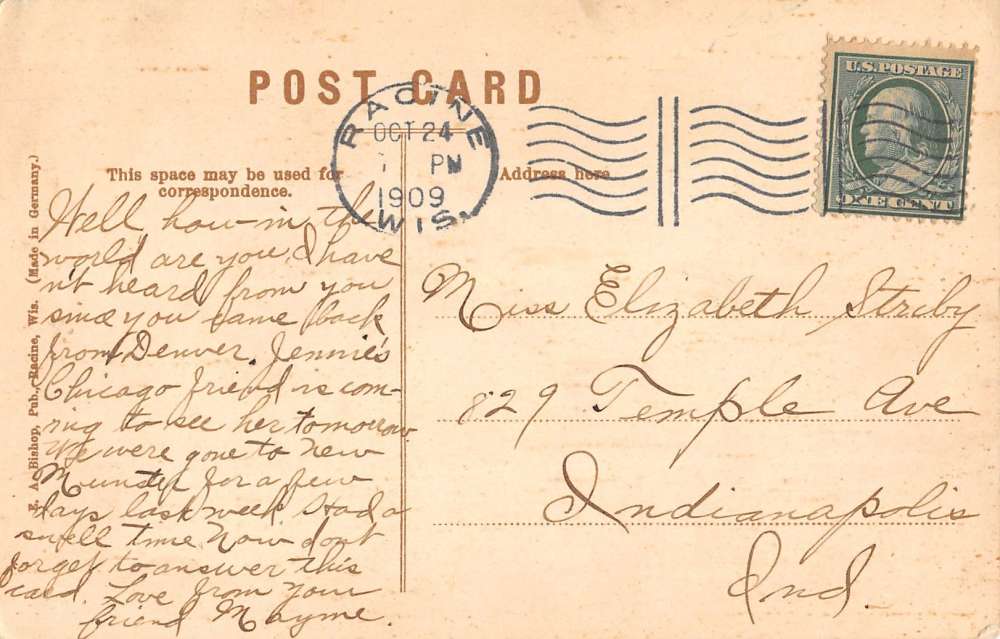 POST CARD
RACINE
OCT 24
PM
1909
WIS.
U.S. POSTAGE
ONE CENT
This space may be used for
correspondence.
Address here
E. A. Bishop, Pub., Racine, Wis. (Made in Germany.)
Well how in the
world are you. I have
n't heard from you
since you came back
from Denver. Jennie's
Chicago friend is com-
ing to see her tomorrow
We were gone to New
Munster for a few
days last week. Had a
swell time Now don't
forget to answer this
card. Love from Your
friend Mayme.
Miss Elizabeth Striby
829 Temple Ave
Indianapolis
Ind.